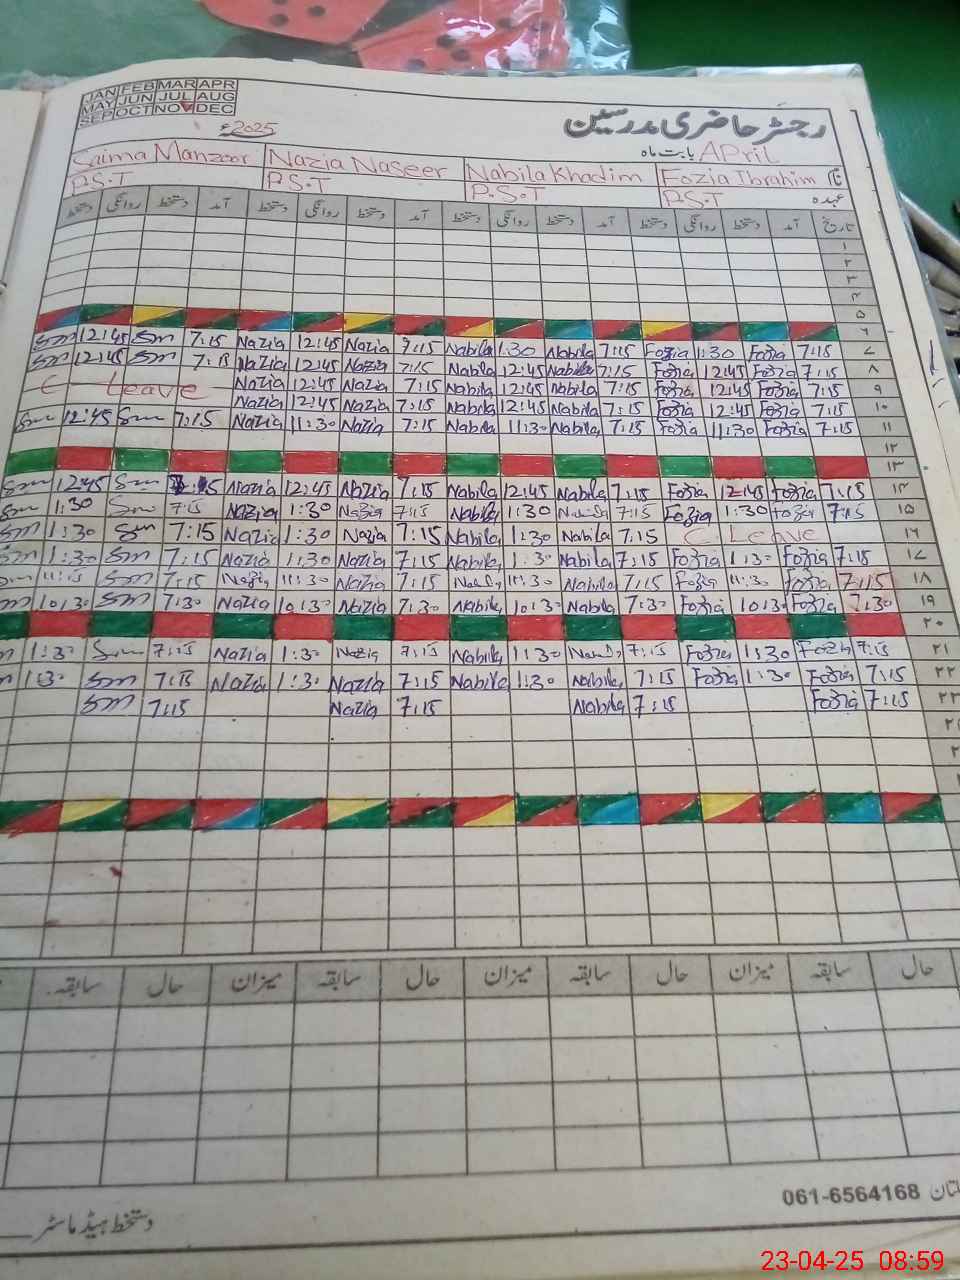 JAN FEB MAR APR
MAY JUN JUL AUG
SEP OCT NOV DEC
رجسٹر حاضری مدرسین
2025ء بابت ماہ APril
Saima Manzoor Nazia Naseer Nabila Khadim Fozia Ibrahim نام
P.S.T P.S.T P.S.T P.S.T عہدہ
دستخط روانگی دستخط آمد دستخط روانگی دستخط آمد دستخط روانگی دستخط آمد دستخط روانگی دستخط آمد تاریخ
۱
۲
۳
۴
۵
۶
Sm 12:45 Sm 7:15 Nazia 12:45 Nazia 7:15 Nabila 1:30 Nabila 7:15 Fozia 1:30 Fozia 7:15 ۷
Sm 12:45 Sm 7:15 Nazia 12:45 Nazia 7:15 Nabila 12:45 Nabila 7:15 Fozia 12:45 Fozia 7:15 ۸
C Leave Nazia 12:45 Nazia 7:15 Nabila 12:45 Nabila 7:15 Fozia 12:45 Fozia 7:15 ۹
Nazia 12:45 Nazia 7:15 Nabila 12:45 Nabila 7:15 Fozia 12:45 Fozia 7:15 ۱۰
Sm 12:45 Sm 7:15 Nazia 11:30 Nazia 7:15 Nabila 11:30 Nabila 7:15 Fozia 11:30 Fozia 7:15 ۱۱
۱۲
۱۳
Sm 12:45 Sm Nazia 12:45 Nazia 7:15 Nabila 12:45 Nabila 7:15 Fozia 12:45 Fozia 7:15 ۱۴
Sm 1:30 Sm 7:15 Nazia 1:30 Nazia 7:15 Nabila 1:30 Nabila 7:15 Fozia 1:30 Fozia 7:15 ۱۵
Sm 1:30 Sm 7:15 Nazia 1:30 Nazia 7:15 Nabila 1:30 Nabila 7:15 C Leave ۱۶
Sm 1:30 Sm 7:15 Nazia 1:30 Nazia 7:15 Nabila 1:30 Nabila 7:15 Fozia 1:30 Fozia 7:15 ۱۷
Sm Sm 7:15 Nazia 11:30 Nazia 7:15 Nabila 11:30 Nabila 7:15 Fozia 11:30 Fozia 7:15 ۱۸
Sm 10:30 Sm 7:30 Nazia 10:30 Nazia 7:30 Nabila 10:30 Nabila 7:30 Fozia 10:30 Fozia 7:30 ۱۹
۲۰
1:30 Sm 7:15 Nazia 1:30 Nazia 7:15 Nabila 1:30 Nabila 7:15 Fozia 1:30 Fozia 7:15 ۲۱
1:30 Sm 7:15 Nazia 1:30 Nazia 7:15 Nabila 1:30 Nabila 7:15 Fozia 1:30 Fozia 7:15 ۲۲
Sm 7:15 Nazia 7:15 Nabila 7:15 Fozia 7:15 ۲۳
سابقہ حال میزان سابقہ حال میزان سابقہ حال میزان سابقہ حال
061-6564168
دستخط ہیڈ ماسٹر
23-04-25 08:59